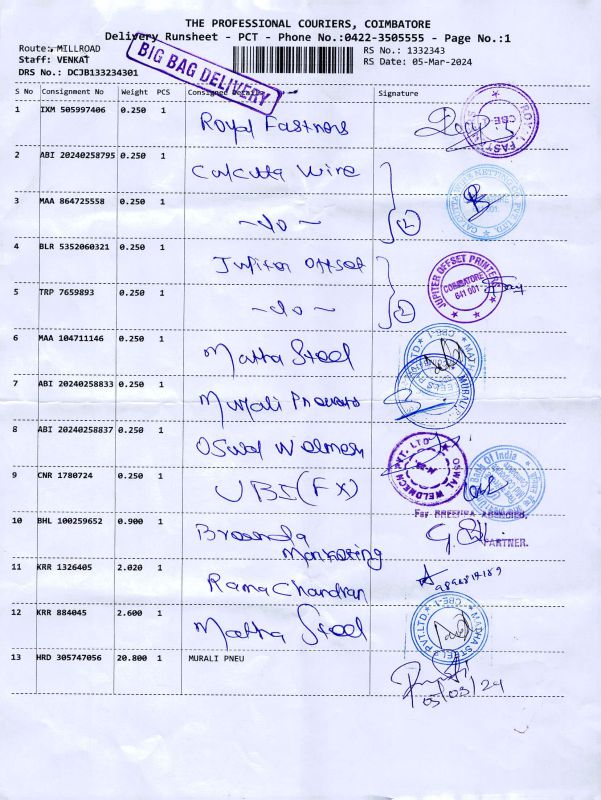 THE PROFESSIONAL COURIERS, COIMBATORE
Delivery Runsheet - PCT - Phone No.:0422-3505555 - Page No.:1
Route: MILLROAD
Staff: VENKAT
DRS No.: DCJB133234301
BIG BAG DELIVERY
RS No.: 1332343
RS Date: 05-Mar-2024
S No Consignment No Weight PCS Consignee Details Signature
1 IXM 505997406 0.250 1 Royal Fastners
2 ABI 20240258795 0.250 1 Calcutta Wire
3 MAA 864725558 0.250 1 -do- 2
4 BLR 5352060321 0.250 1 Jupiter Offset
JUPITER OFFSET PRINTERS
COIMBATORE
641 001
5 TRP 7659893 0.250 1 -do- 2
6 MAA 104711146 0.250 1 Matha Steel
7 ABI 20240258833 0.250 1 Murali
8 ABI 20240258837 0.250 1 Oswal Welmech
OSWAL WELDMECH PVT. LTD
9 CNR 1780724 0.250 1 UBI (FX)
Bank of India
10 BHL 100259652 0.900 1 Marketing
For AGENCIES,
PARTNER.
11 KRR 1326405 2.020 1 Rama Chandran
12 KRR 884045 2.600 1 Matha Steel
13 HRD 305747056 20.800 1 MURALI PNEU
05/03/24